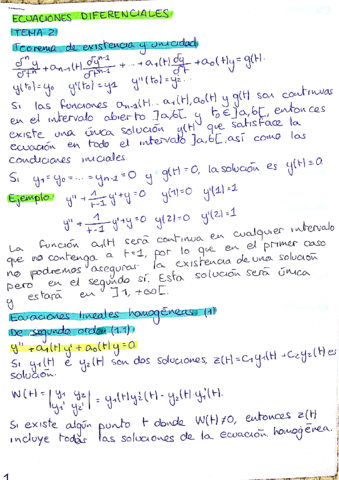 ECUACIONES DIFERENCIALES
TEMA 2:
Teorema de existencia y unicidad
dⁿy/dtⁿ + aₙ₋₁(t) dyⁿ⁻¹/dtⁿ⁻¹ + ... + a₁(t) dy/dt + a₀(t)y = g(t).
y(t₀)=y₀ y'(t₀)=y₁ y''(t₀)=y₂...
Si las funciones aₙ₋₁(t)...a₁(t), a₀(t) y g(t) son continuas
en el intervalo abierto ]a,b[ y t₀∈]a,b[, entonces
existe una única solución y(t) que satisface la
ecuación en todo el intervalo ]a,b[, así como las
condiciones iniciales.
Si y₁=y₀=...=yₙ₋₁=0 y g(t)=0, la solución es y(t)=0.
Ejemplo: y'' + 1/(t-1) y' + y = 0 y(1)=0 y'(1)=1
y'' + 1/(t-1) y' + y = 0 y(2)=0 y'(2)=1
La función a₁(t) será continua en cualquier intervalo
que no contenga a t=1, por lo que en el primer caso
no podremos asegurar la existencia de una solución
pero en el segundo sí. Esta solución será única
y estará en ]1,+∞[.
Ecuaciones lineales homogéneas (1)
De segundo orden (1.1)
y'' + a₁(t)y' + a₀(t)y = 0
Si y₁(t) e y₂(t) son dos soluciones, z(t)=C₁y₁(t)+C₂y₂(t) es
solución.
W(t) = |y₁ y₂; y₁' y₂'| = y₁(t)y₂'(t) - y₂(t)y₁'(t).
Si existe algún punto t donde W(t)≠0, entonces z(t)
incluye todas las soluciones de la ecuación homogénea.
1